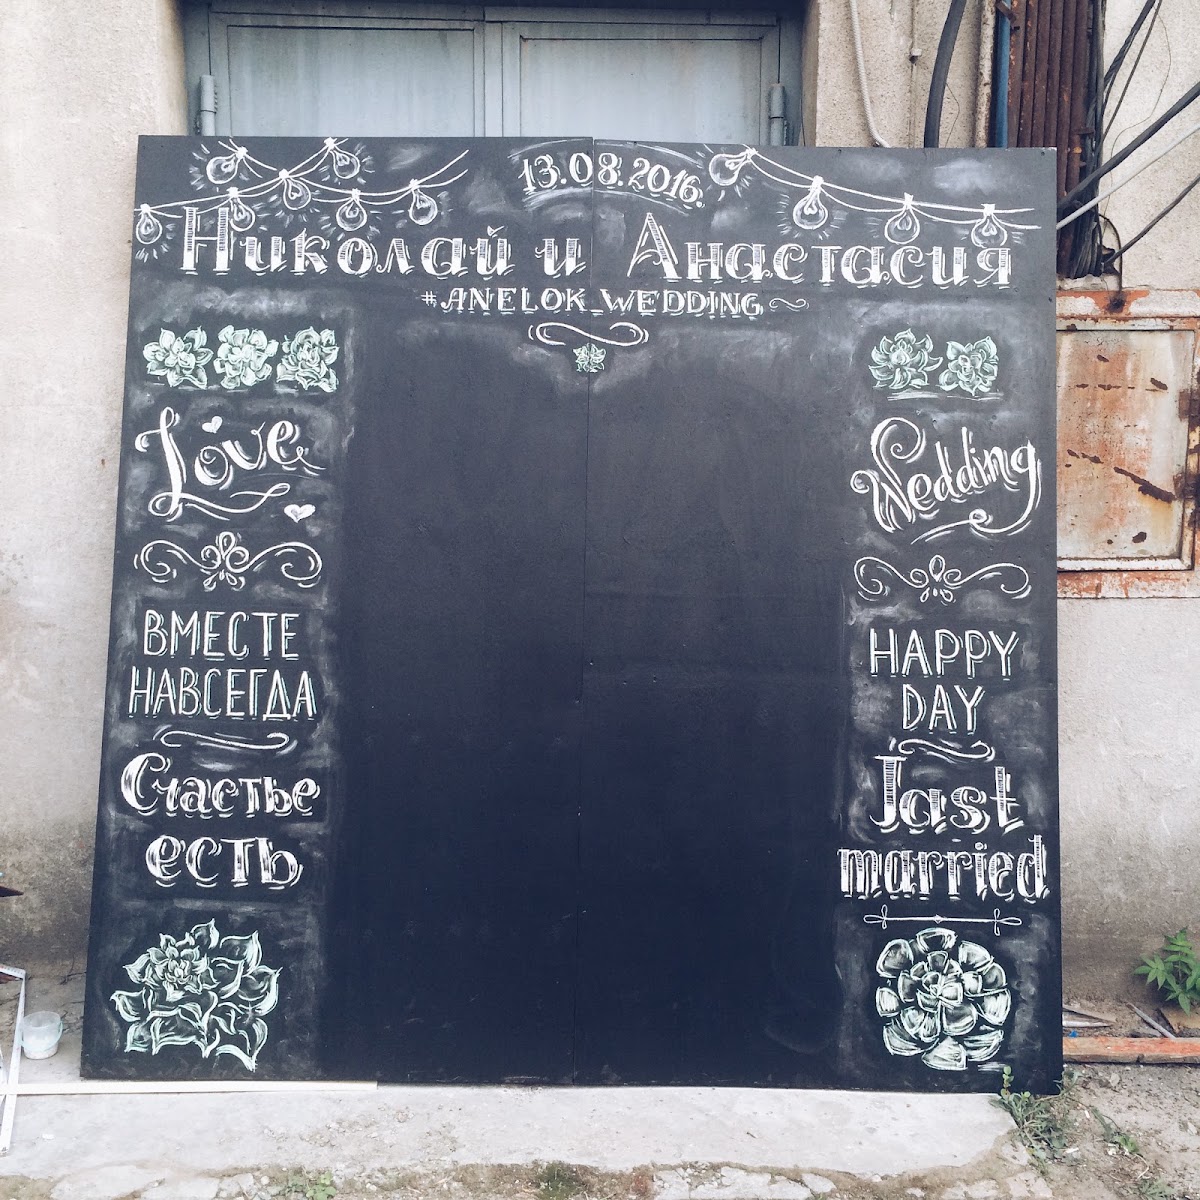 13.08.2016.
Николай и Анастасия
#ANELOK_WEDDING
Love
ВМЕСТЕ
НАВСЕГДА
Счастье
есть
Wedding
HAPPY
DAY
Jast
married